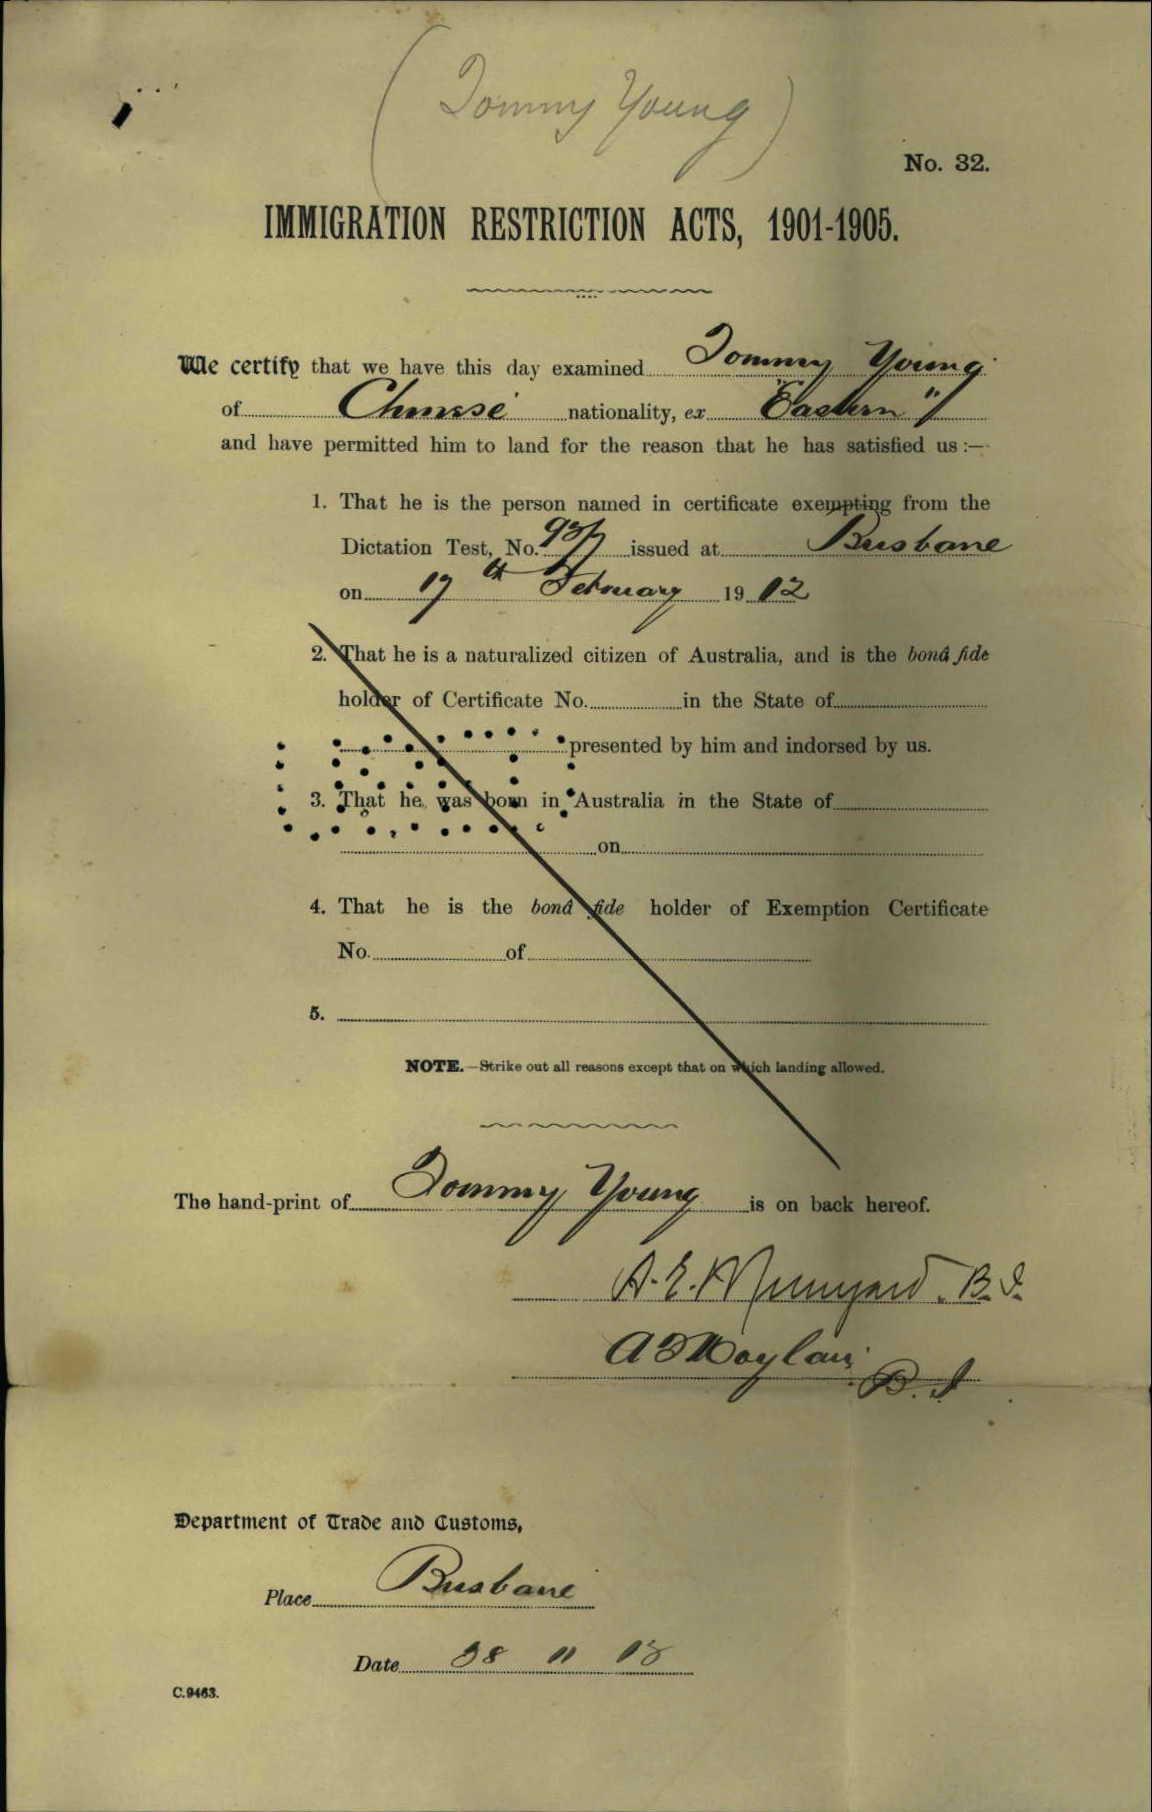 (Tommy Young)
No. 32.
IMMIGRATION RESTRICTION ACTS, 1901-1905.
We certify that we have this day examined Tommy Young
of Chinese nationality, ex "Eastern"
and have permitted him to land for the reason that he has satisfied us :—
1. That he is the person named in certificate exempting from the
Dictation Test, No. issued at Brisbane
on 17th February 1912
2. That he is a naturalized citizen of Australia, and is the bonâ fide
holder of Certificate No. in the State of
presented by him and indorsed by us.
3. That he was born in Australia in the State of
on
4. That he is the bonâ fide holder of Exemption Certificate
No. of
5.
NOTE.—Strike out all reasons except that on which landing allowed.
The hand-print of Tommy Young is on back hereof.
A. E. Munyard. B.I.
A Moylan B.I
Department of Trade and Customs,
Place Brisbane
Date 28 11 13
C.9463.